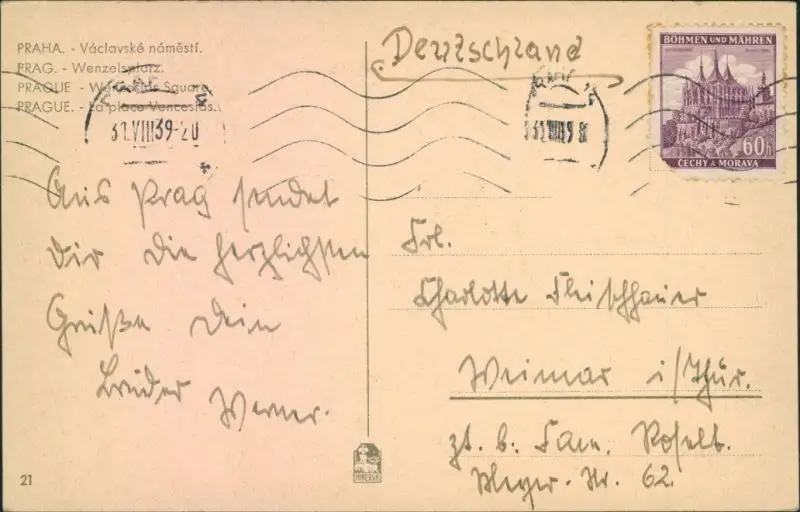 PRAHA. - Václavské náměstí.
PRAG. - Wenzelsplatz.
PRAGUE - Wenceslas Square
PRAGUE. - La place Venceslas.
31.VIII.39-20
Deutschland
BÖHMEN UND MÄHREN
60h
ČECHY A MORAVA
Aus Prag sendet
Dir die herzlichsten
Grüße Dein
Bruder Werner.
Frl.
Charlotte Fleischhauer
Weimar i/Thür.
zt. b. Fam.
Meyer-Str. 62.
MINERVA
21